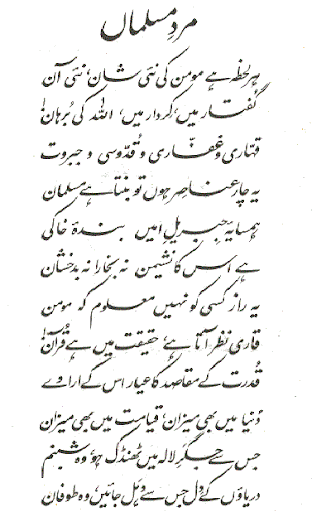 مردِ مسلماں
ہر لحظہ ہے مومن کی نئی شان، نئی آن
گفتار میں، کردار میں، اللہ کی بُرہان!
قہّاری و غفّاری و قدّوسی و جبروت
یہ چار عناصر ہوں تو بنتا ہے مسلمان
ہمسایۂ جبریلِ امیں بندۂ خاکی
ہے اس کا نشیمن نہ بخارا نہ بدخشان
یہ راز کسی کو نہیں معلوم کہ مومن
قاری نظر آتا ہے، حقیقت میں ہے قُرآن!
قُدرت کے مقاصد کا عیار اس کے ارادے
دُنیا میں بھی میزان، قیامت میں بھی میزان
جس سے جگرِ لالہ میں ٹھنڈک ہو، وہ شبنم
دریاؤں کے دل جس سے دہل جائیں، وہ طوفان